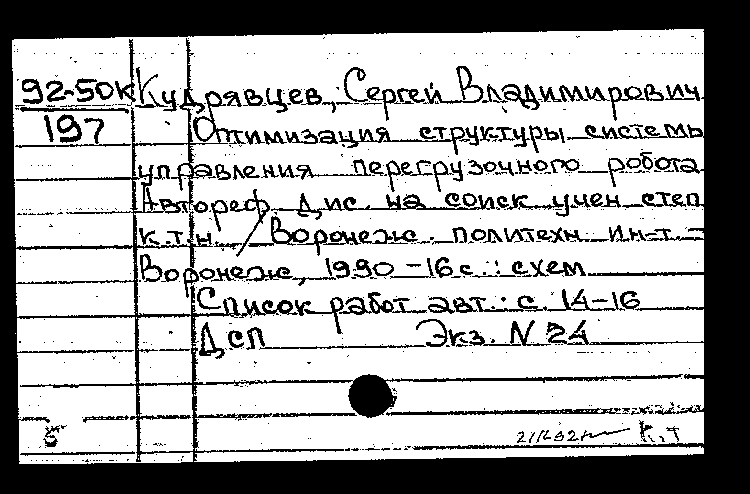 92-50К Кудрявцев, Сергей Владимирович
197 Оптимизация структуры системы
управления перегрузочного робота
Автореф. Дис. на соиск учен степ
к.т.н. / Воронеж. политехн. ин-т. -
Воронеж, 1990 -16 с. : схем
Список работ авт.: с. 14-16
ДСП Экз. N 24
б К.Т